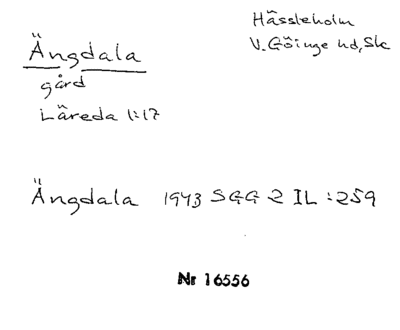 Ängdala
gård
Läreda 1:17
Hässleholm
V. Göinge hd, Sk
Ängdala 1943 SGG 2 IL :259
Nr 16556